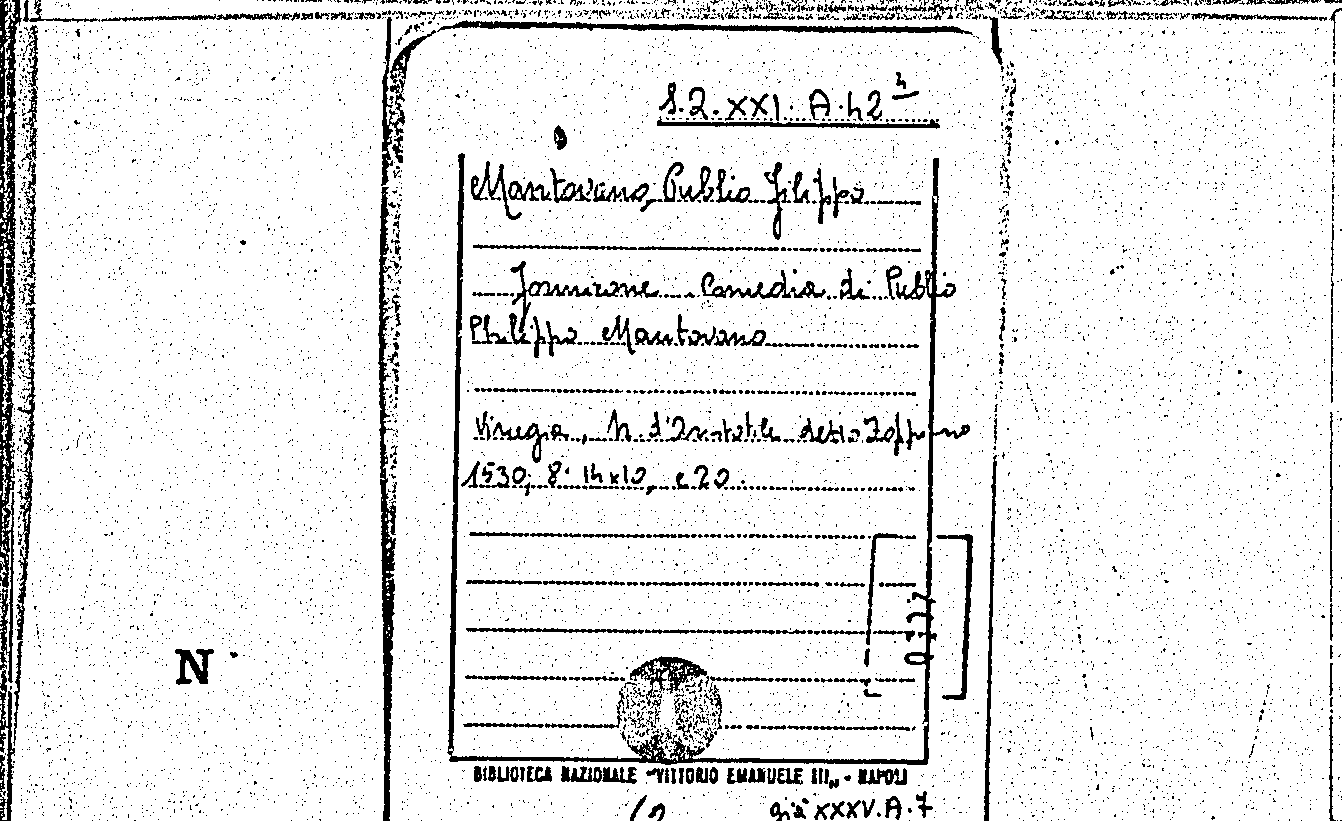 S.Q. XXI. A. 42 4
Mantovano, Publio Filippo
Formicone. Comedia di Publio
Philippo Mantovano
Vinegia, N. d'Aristotile detto Zoppino
1530, 8° 14x10, c 20.
N
BIBLIOTECA NAZIONALE "VITTORIO EMANUELE III„ - NAPOLI
già XXXV. A. 7